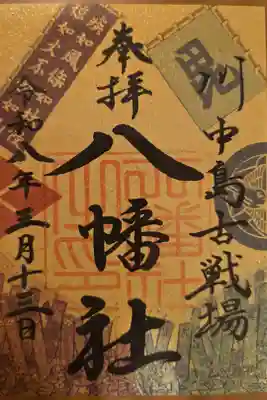 毘
川中島古戦場
奉拝
八幡社
令和八年三月十三日